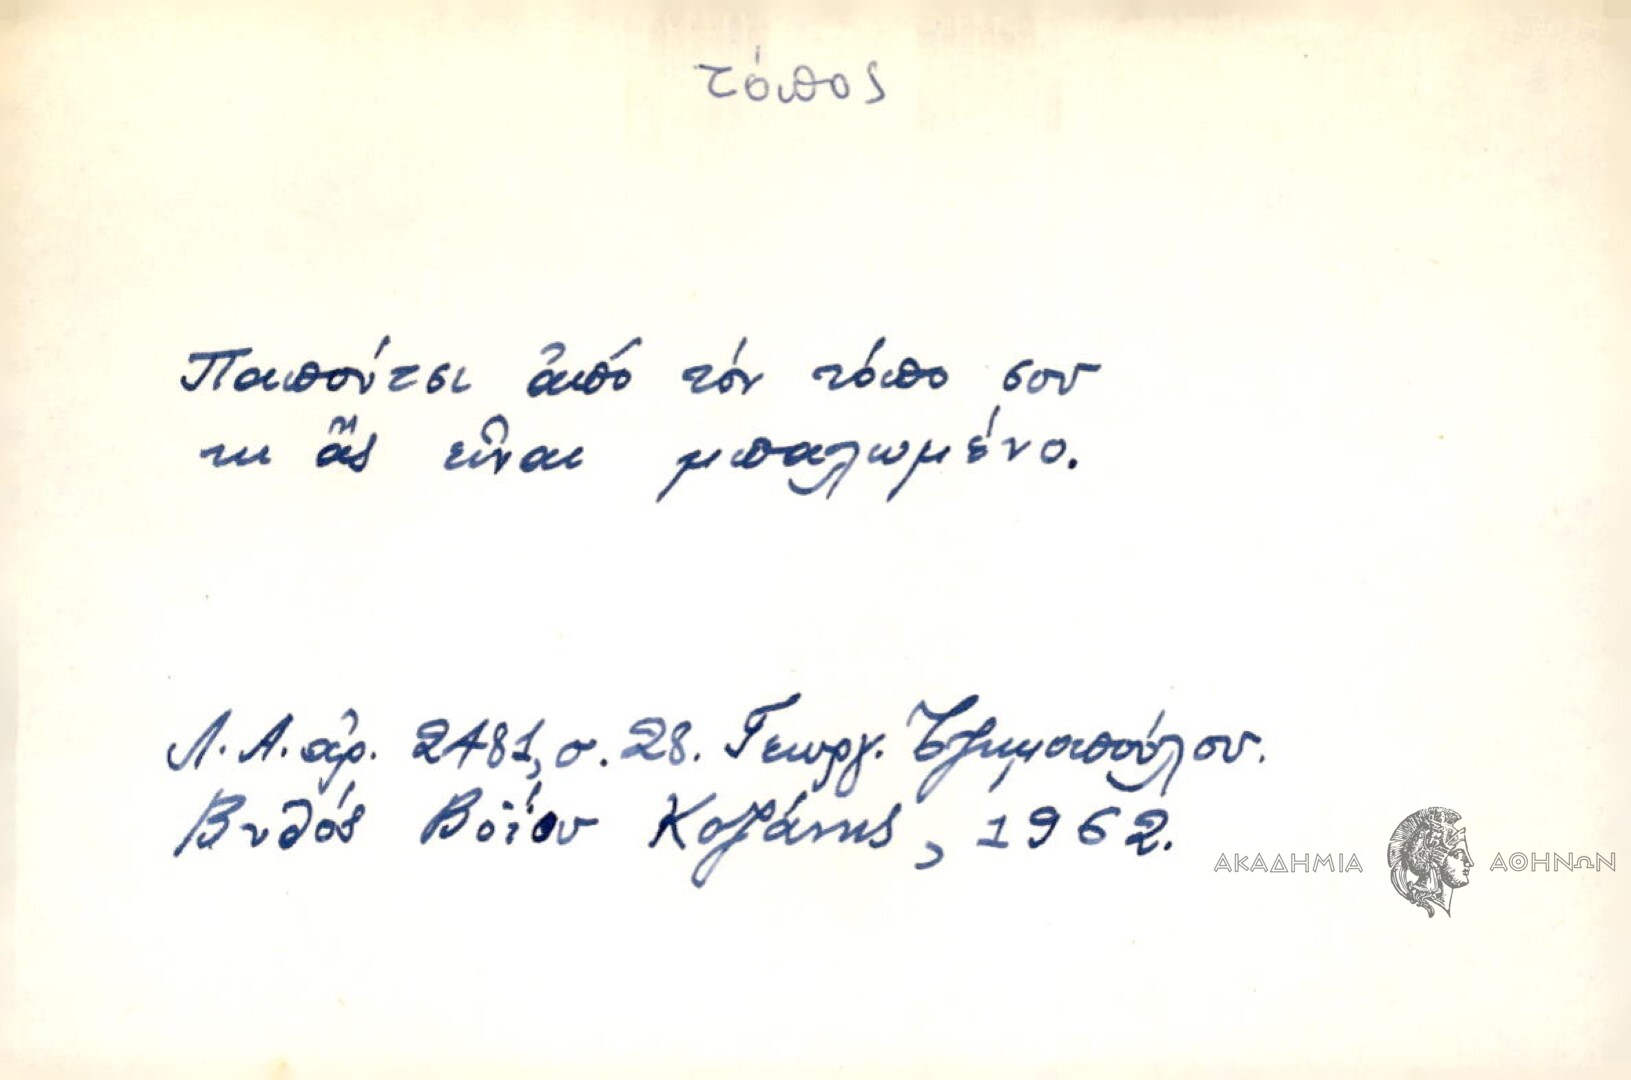 τόπος
Παπούτσι ἀπό τόν τόπο σου
κι ἄς εἶναι μπαλωμένο.
Λ.Α. ἀρ. 2481, σ. 28. Γεωργ.
Βυθός Βοΐου Κοζάνης, 1962.
ΑΚΑΔΗΜΙΑ ΑΘΗΝΩΝ